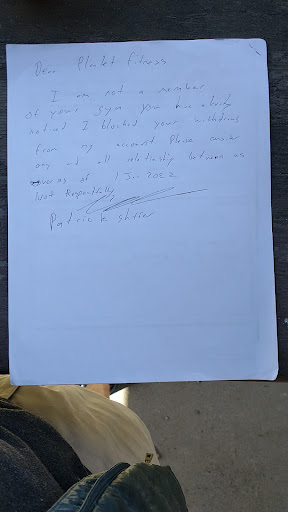 Dear Planet fitness
I am not a member
of your gym you have already
noticed I blocked your withdraws
from my account Please consider
any and all relationship between us
over as of 1 Jun 2022
Respectfully
Patrick